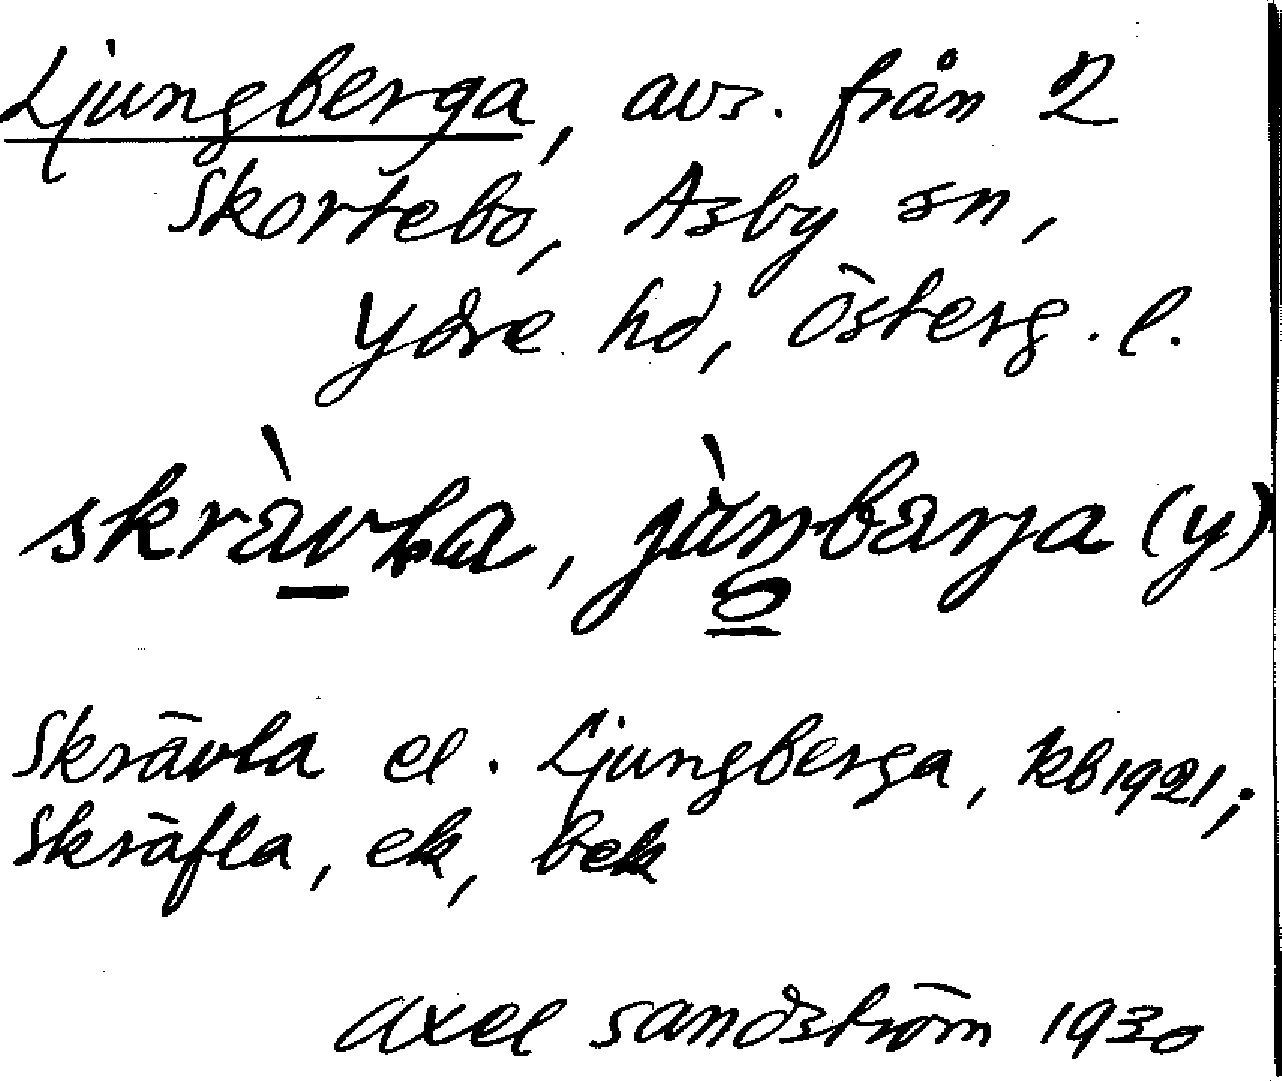 Ljungberga, avs. från 2
Skortebo, Asby sn,
Ydre hd, Österg. l.
skràvla, jùnbarja (y)
Skrävla el. Ljungberga, kb 1921;
Skräfla, ek, bek
Axel Sandström 1930